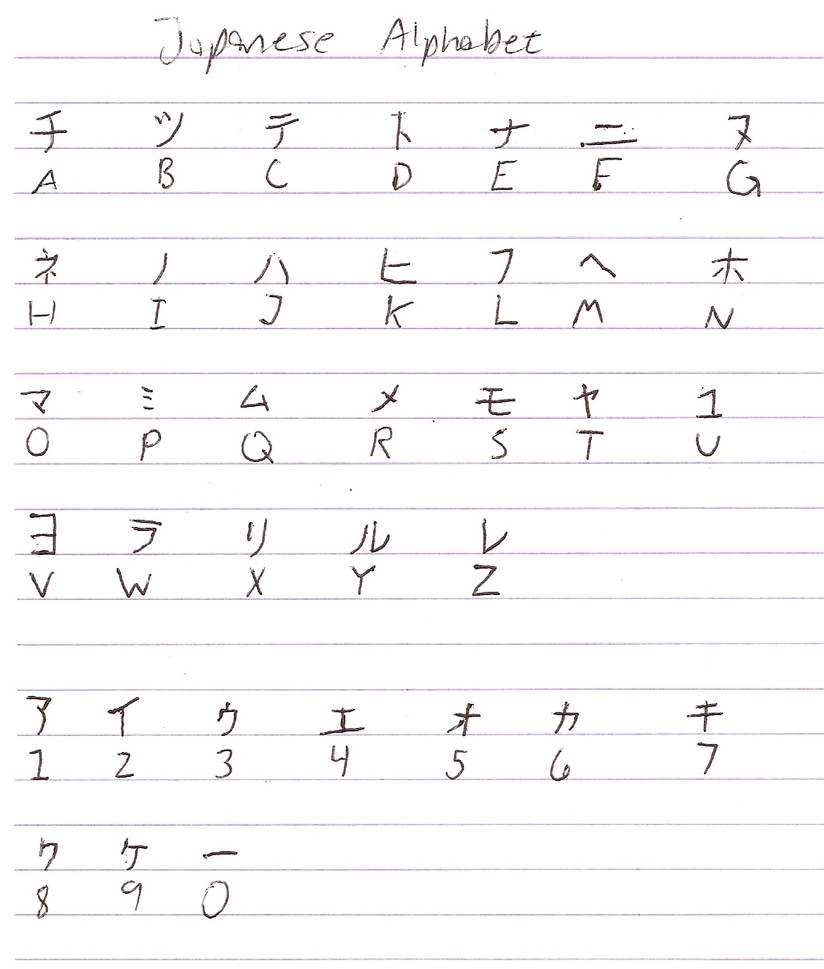 Japanese Alphabet
チ ツ テ ト ナ ニ ヌ
A B C D E F G
ネ ノ ハ ヒ フ ヘ ホ
H I J K L M N
マ ミ ム メ モ ヤ ユ
O P Q R S T U
ヨ ラ リ ル レ
V W X Y Z
ア イ ウ エ オ カ キ
1 2 3 4 5 6 7
ク ケ ー
8 9 0